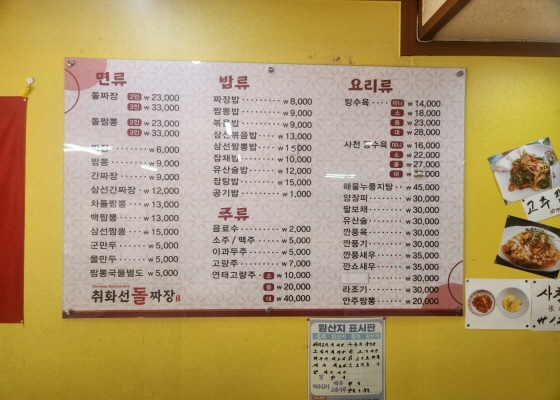 면류
돌짜장 2인 ₩ 23,000
3인 ₩ 33,000
돌짬뽕 2인 ₩ 23,000
3인 ₩ 33,000
₩ 6,000
짬뽕 ₩ 9,000
간짜장 ₩ 9,000
삼선간짜장 ₩ 12,000
차돌짬뽕 ₩ 13,000
백짬뽕 ₩ 13,000
삼선짬뽕 ₩ 15,000
군만두 ₩ 5,000
물만두 ₩ 5,000
짬뽕국물별도 ₩ 5,000
취화선 돌짜장
밥류
짜장밥 ₩ 8,000
짬뽕밥 ₩ 9,000
볶음밥 ₩ 9,000
삼선볶음밥 ₩ 13,000
삼선짬뽕밥
잡채밥 ₩ 10,000
유산슬밥 ₩ 12,000
잡탕밥 ₩ 15,000
공기밥 ₩ 1,000
주류
음료수 ₩ 2,000
소주 / 맥주 ₩ 5,000
이과두주 ₩ 5,000
고량주 ₩ 7,000
연태고량주 소 ₩ 10,000
중 ₩ 20,000
대 ₩ 40,000
요리류
탕수육 미니 ₩ 14,000
소 ₩ 18,000
중 ₩ 23,000
대 ₩ 28,000
사천 탕수육 미니 ₩ 16,000
소 ₩ 22,000
중 ₩ 27,000
대
해물누룽지탕 ₩ 45,000
양장피 ₩ 30,000
팔보채 ₩ 30,000
유산슬 ₩ 30,000
깐풍육 ₩ 30,000
깐풍기 ₩ 30,000
깐풍새우 ₩ 35,000
깐쇼새우 ₩ 35,000
₩ 30,000
라조기 ₩ 30,000
안주짬뽕 ₩ 20,000
원산지 표시판
고추